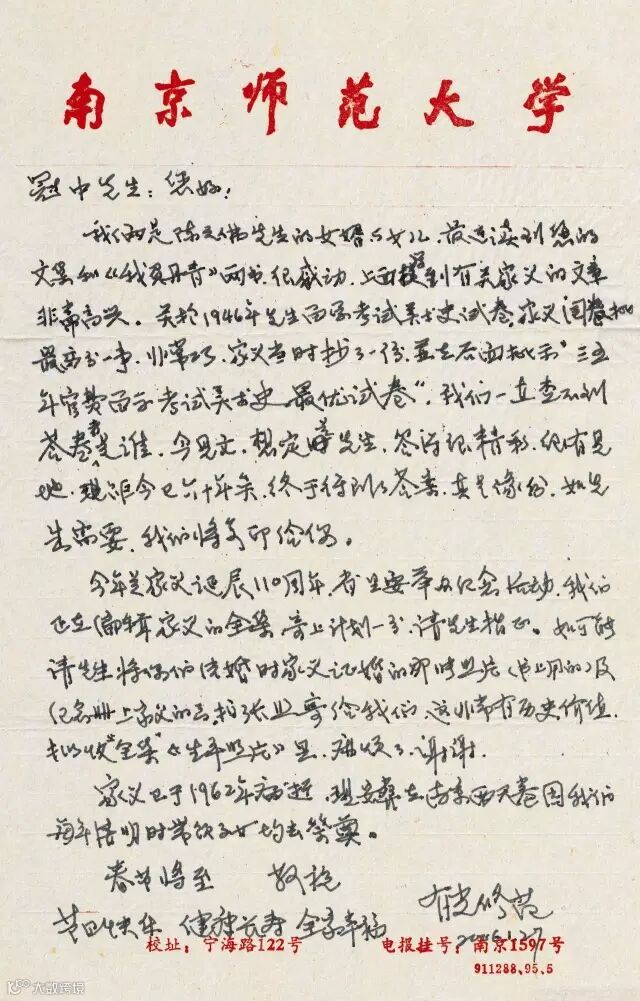 南京师范大学
冠中先生：您好！
我们俩是陈之佛先生的女婿与女儿，最近读到您的
文墨和《我负丹青》两书，很感动，上面提到有关家父的文章
非常高兴。关于1946年先生留学考试美术史试卷，家父阅卷批
最高分一事，非常巧，家父当时抄了一份，并在后面批示“三五
年官费留学考试美术史最优试卷”，我们一直查不到
答卷者是谁，今见文，想定是先生，答得很精彩，很有见
地，现距今已六十年矣，终于得到了答案，真是缘份，如先
生需要，我们将复印给您。
今年是家父诞辰110周年，省里要举办纪念活动，我们
正在编辑家父的全集，寄上计划一份，请先生指正。如可能
请先生将您们结婚时家父证婚的那帧照片（书上用的）及
纪念册上家父的
寄给我们，这非常有历史价值，
拟收“全集”《生平照片》里，麻烦了，谢谢。
家父已于1962年病逝，现安葬在南京西天巷因我们
每年清明时带领子女均去祭奠。
春节将至 敬祝
节日快乐 健康长寿 全家幸福
李有光 陈修范
2006.1.27
校址：宁海路122号 电报挂号：南京1597号
911288.95.5
大数跨境